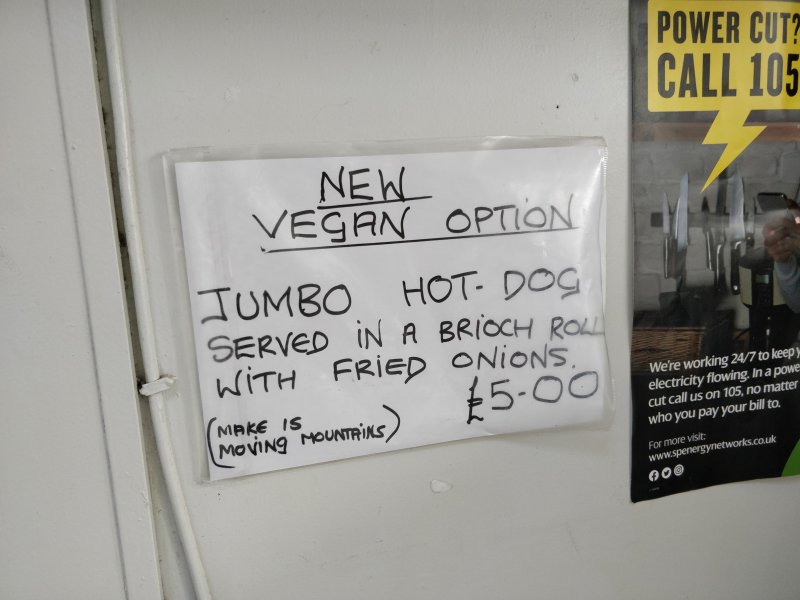 NEW
VEGAN OPTION
JUMBO HOT-DOG
SERVED IN A BRIOCH ROLL
WITH FRIED ONIONS.
£5-00
(MAKE IS
MOVING MOUNTAINS)
POWER CUT?
CALL 105
We're working 24/7 to keep y
electricity flowing. In a powe
cut call us on 105, no matter
who you pay your bill to.
For more visit:
www.spenergynetworks.co.uk